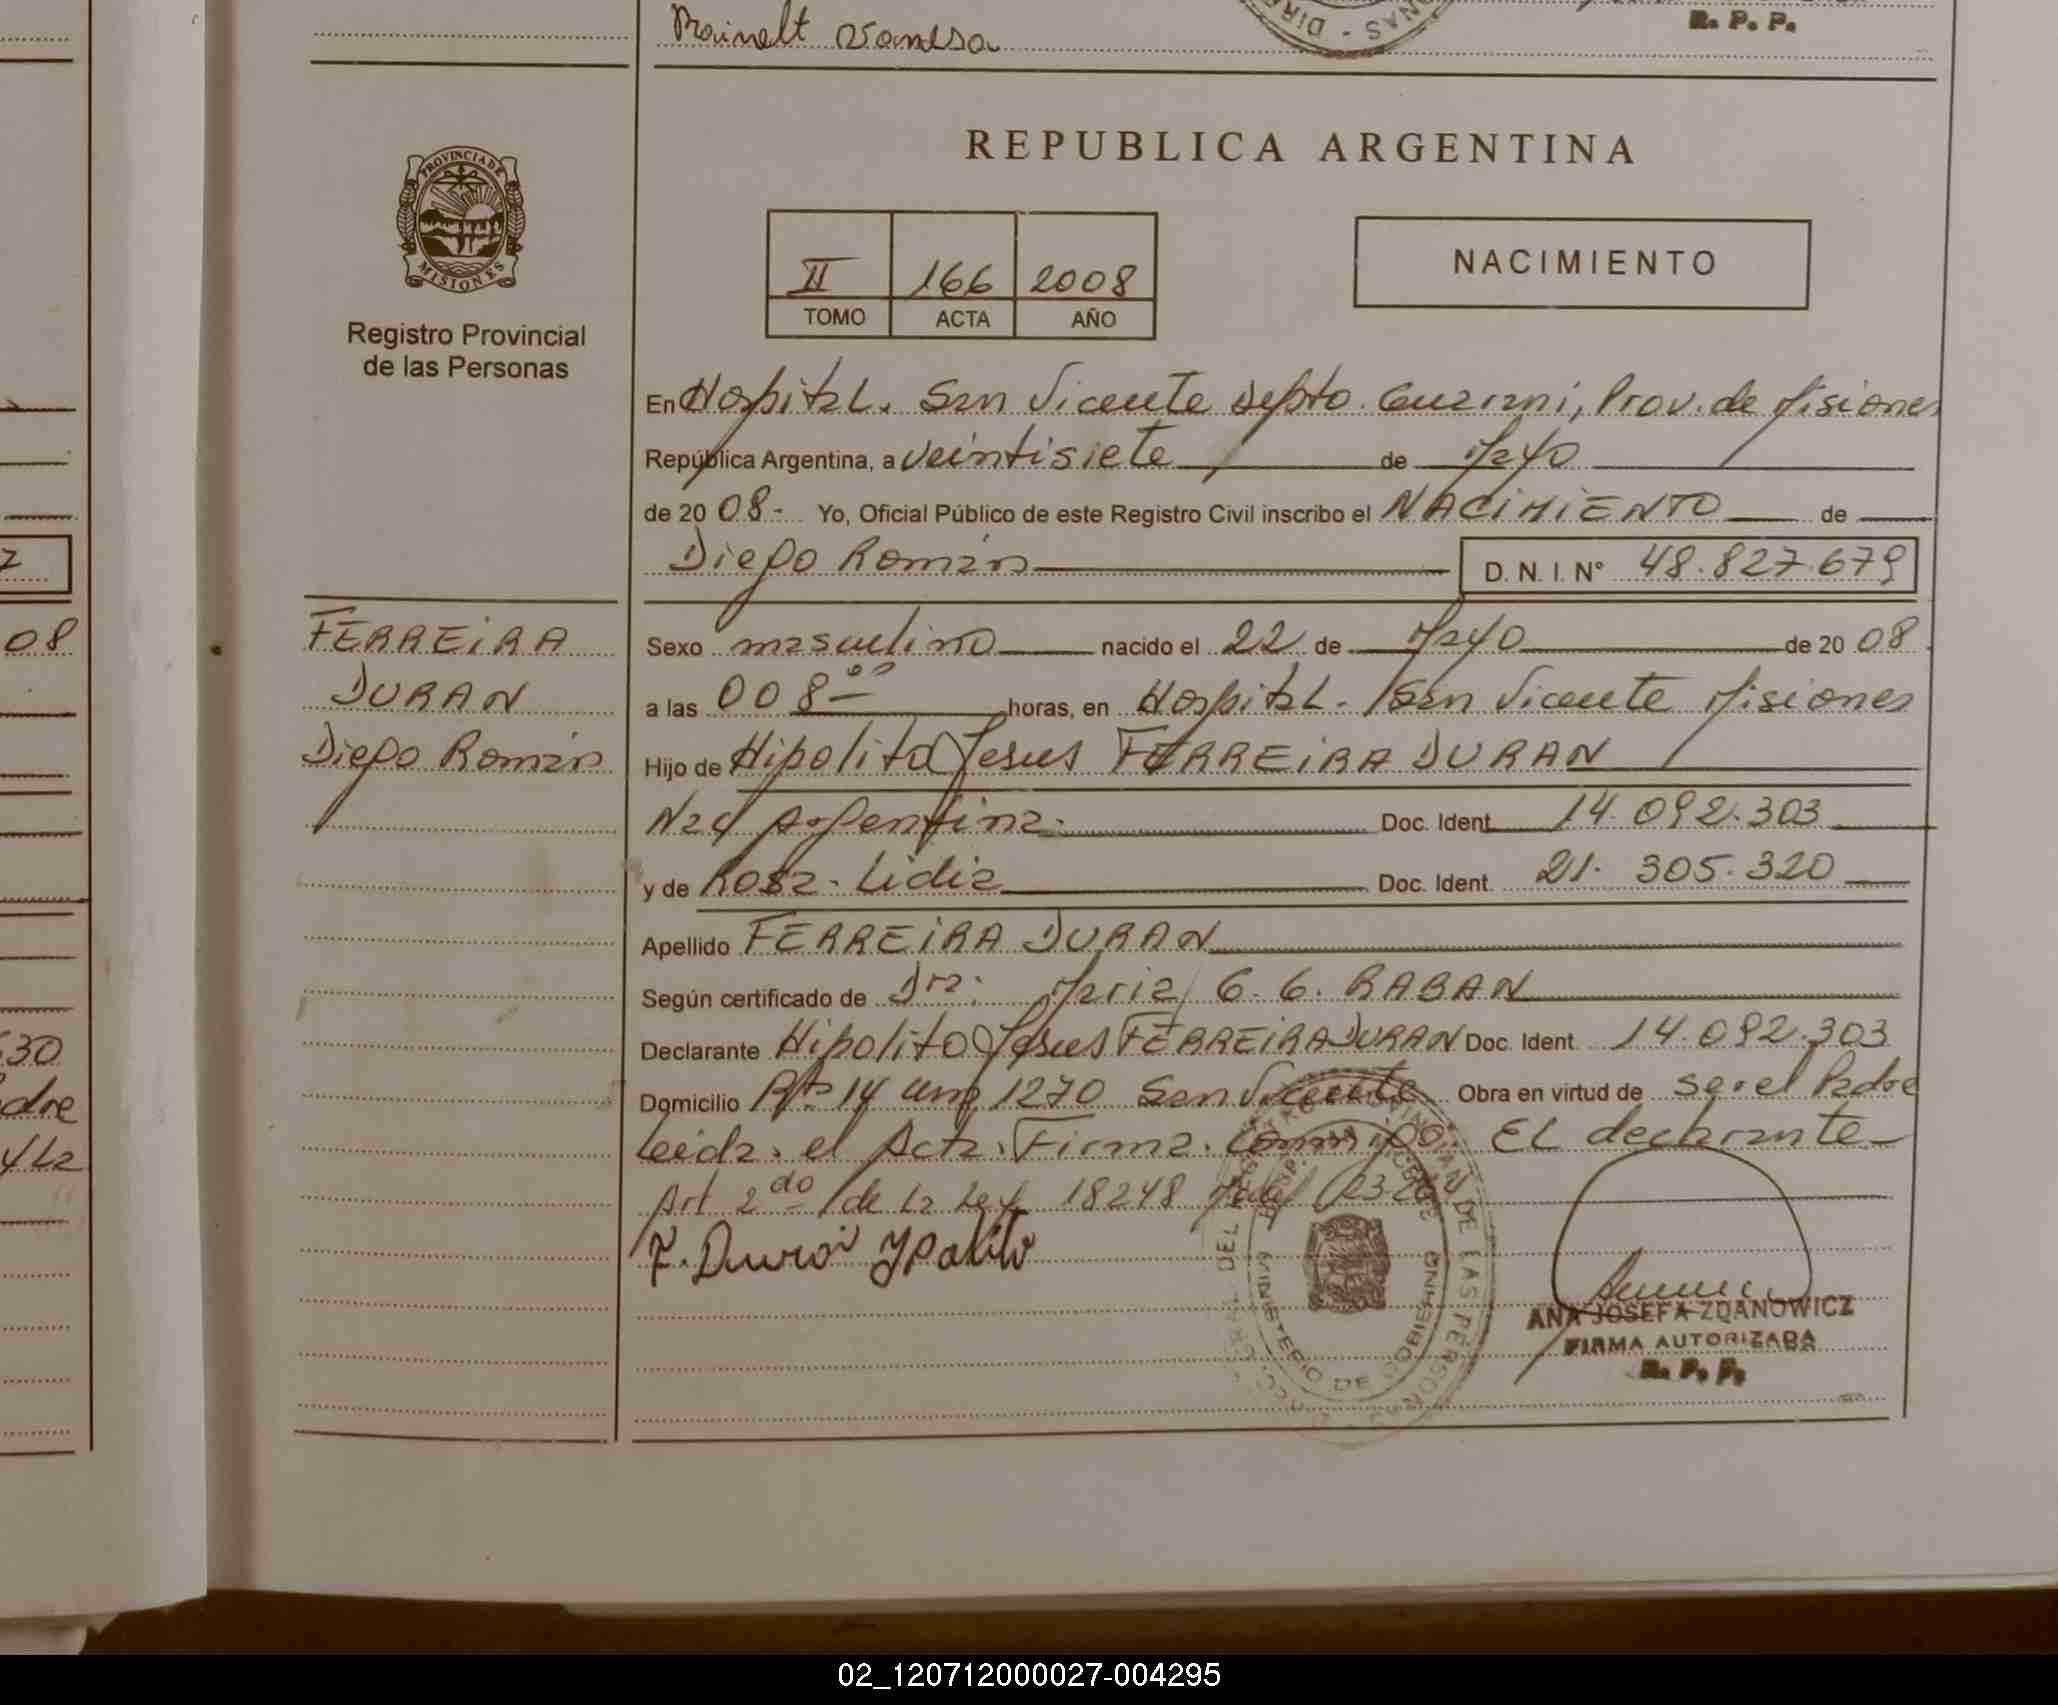 Rainelt Vanesa
R. P. P.
PROVINCIA DE
MISIONES
Registro Provincial
de las Personas
REPUBLICA ARGENTINA
II 166 2008
TOMO ACTA AÑO
NACIMIENTO
En Hospital. San Vicente depto. Guarani, Prov. de Misiones
República Argentina, a veintisiete de Mayo
de 20 08- Yo, Oficial Público de este Registro Civil inscribo el NACIMIENTO de
Diego Román D. N. I. Nº 48.827.679
FERREIRA
DURAN
Diego Román
Sexo masculino nacido el 22 de Mayo de 20 08
a las 008 00 horas, en Hospital. San Vicente Misiones
Hijo de Hipolito Jesus FERREIRA DURAN
Nac Argentina. Doc. Ident. 14.092.303
y de Rosa. Lidia Doc. Ident. 21.305.320
Apellido FERREIRA DURAN
Según certificado de Dra: Maria G. G. RABAN
Declarante Hipolito Jesus FERREIRA DURAN Doc. Ident. 14.092.303
Domicilio Rta 14 1270 San Vicente Obra en virtud de ser el Padre
Leida. el Acta. Firma. conmigo. EL declarante
Art 2do de la Ley 18248
F. Duran Ypolito
MINISTERIO DE GOBIERNO
DE LAS PERSONAS
ANA JOSEFA ZDANOWICZ
FIRMA AUTORIZADA
R. P. P.
08
30
dre
02_120712000027-004295